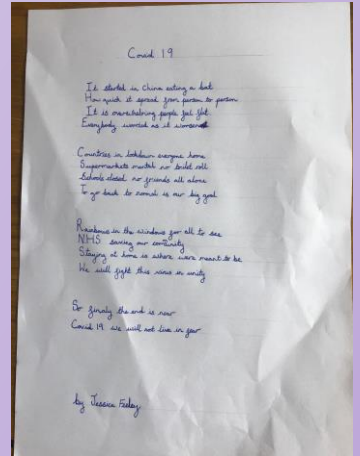 Covid 19
It started in China eating a bat
How quick it spread from person to person
It is people feel flat
Everybody worried as it worsened
Countries in lockdown everyone home
Supermarkets mental no toilet roll
Schools closed no friends all alone
To go back to normal is our big goal
Rainbows in the windows for all to see
NHS saving our
Staying at home is where were meant to be
We will fight this virus in unity
So finaly the end is now
Covid 19 we will not live in fear
by Jessica